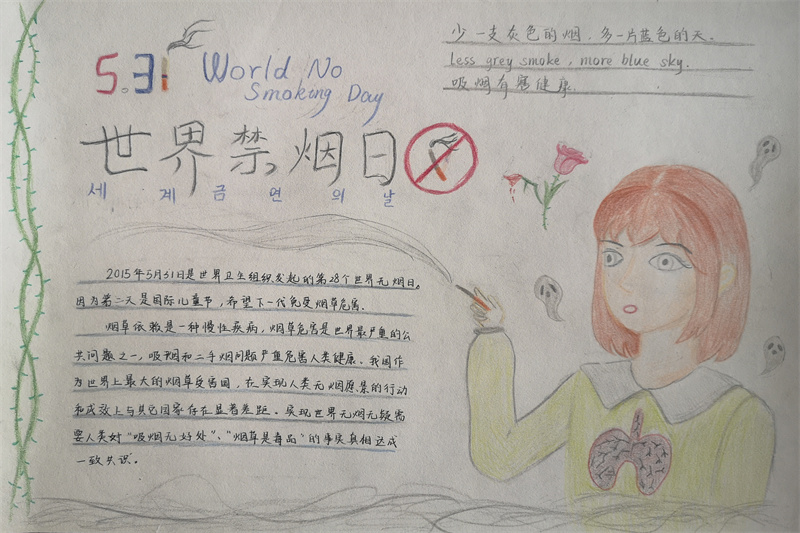 5.31 World No
Smoking Day
少一支灰色的烟，多一片蓝色的天。
less grey smoke, more blue sky.
吸烟有害健康
世界禁烟日
세계금연의날
2015年5月31日是世界卫生组织发起的第28个世界无烟日。
因为第二天是国际儿童节，希望下一代免受烟草危害.
烟草依赖是一种慢性疾病，烟草危害是世界最严重的公
共问题之一，吸烟和二手烟问题严重危害人类健康。我国作
为世界上最大的烟草受害国，在实现人类无烟愿景的行动
和成效上与其它国家存在显著差距。实现世界无烟无疑需
要人类对“吸烟无好处”、“烟草是毒品”的事实真相达成
一致共识。